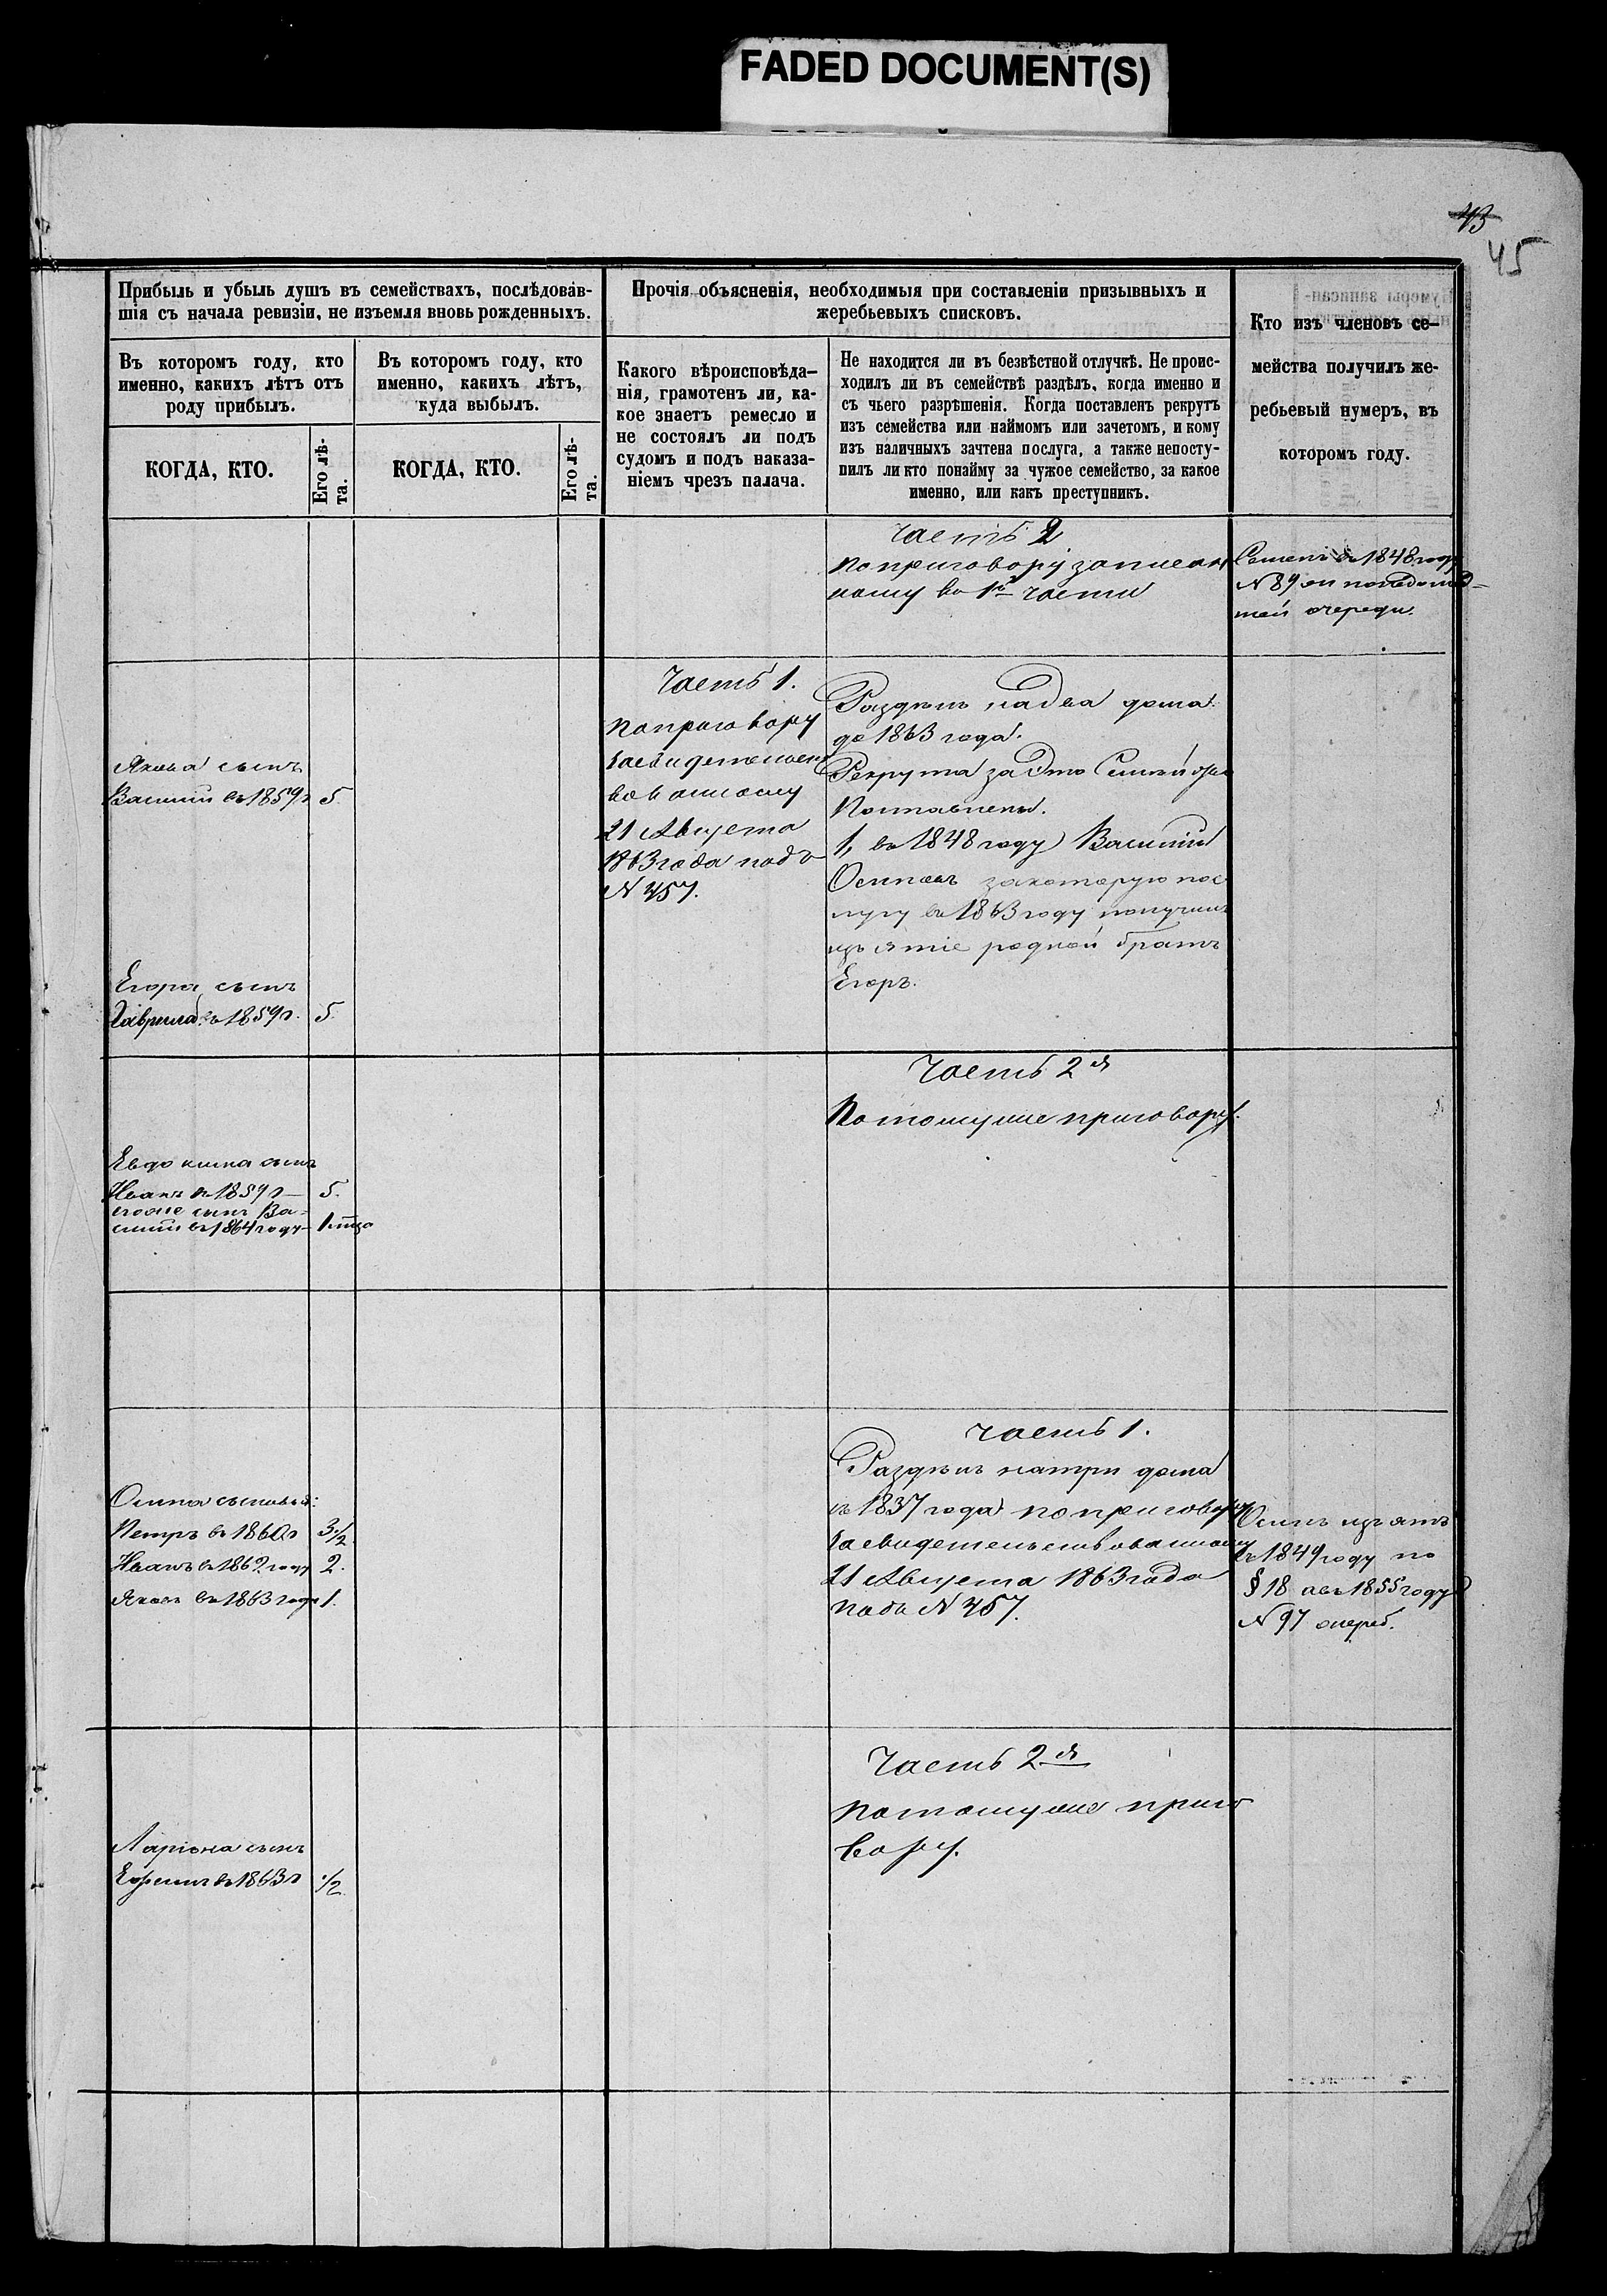 FADED DOCUMENT(S)
43
45
Прибыль и убыль душъ въ семействахъ, послѣдовав-
шія съ начала ревизіи, не изъемля вновь рожденныхъ.
Въ которомъ году, кто
именно, какихъ лѣтъ отъ
роду прибылъ.
КОГДА, КТО.
Его лѣ-
та.
Въ которомъ году, кто
именно, какихъ лѣтъ,
куда выбылъ.
КОГДА, КТО.
Его лѣ-
та.
Прочія объясненія, необходимыя при составленіи призывныхъ и
жеребьевыхъ списковъ.
Какого вѣроисповѣда-
нія, грамотенъ ли, ка-
кое знаетъ ремесло и
не состоялъ ли подъ
судомъ и подъ наказа-
ніемъ чрезъ палача.
Не находится ли въ безвѣстной отлучкѣ. Не проис-
ходилъ ли въ семействѣ раздѣлъ, когда именно и
съ чьего разрѣшенія. Когда поставленъ рекрутъ
изъ семейства или наймомъ или зачетомъ, и кому
изъ наличныхъ зачтена послуга, а также непосту-
пилъ ли кто понайму за чужое семейство, за какое
именно, или какъ преступникъ.
Кто изъ членовъ се-
мейства получилъ же-
ребьевый нумеръ, въ
которомъ году.
Часть 2
по приговору записан
ному во 1й части
Семенъ въ 1848 году
N 89
очереди.
Якова сынъ
Василій въ 1859 г 5
Егора сынъ
Гаврила въ 1859 г. 5.
Часть 1.
по приговору
засвидетельст
вованному
21 Августа
1863 года подъ
N 457.
Раздѣлъ на два дома
до 1863 года.
Рекрута за это Семейство
Поставлены.
1, въ 1848 году Василій
Осиповъ за которую пос
лугу въ 1863 году получилъ
изъятіе родной братъ
Егоръ.
Евдокима сынъ
Иванъ въ 1859 г 5.
егоже сынъ Ва-
силій въ 1864 году
Часть 2я
По томуже приговору.
Осипа сыновья:
Петръ въ 1860 г 3 1/2
Иванъ въ 1862 году 2.
Яковъ въ 1863 годе 1.
Часть 1.
Раздѣлъ на три дома
съ 1837 года по приговору
засвидетельствованному
21 Августа 1863 года
подъ N 457.
Осипъ изъятъ
въ 1849 году по
§ 18 а въ 1855 году
N 97
Ларіона сынъ
Ефимъ въ 1863 г 1/2
Часть 2я
по томуже приго
вору.